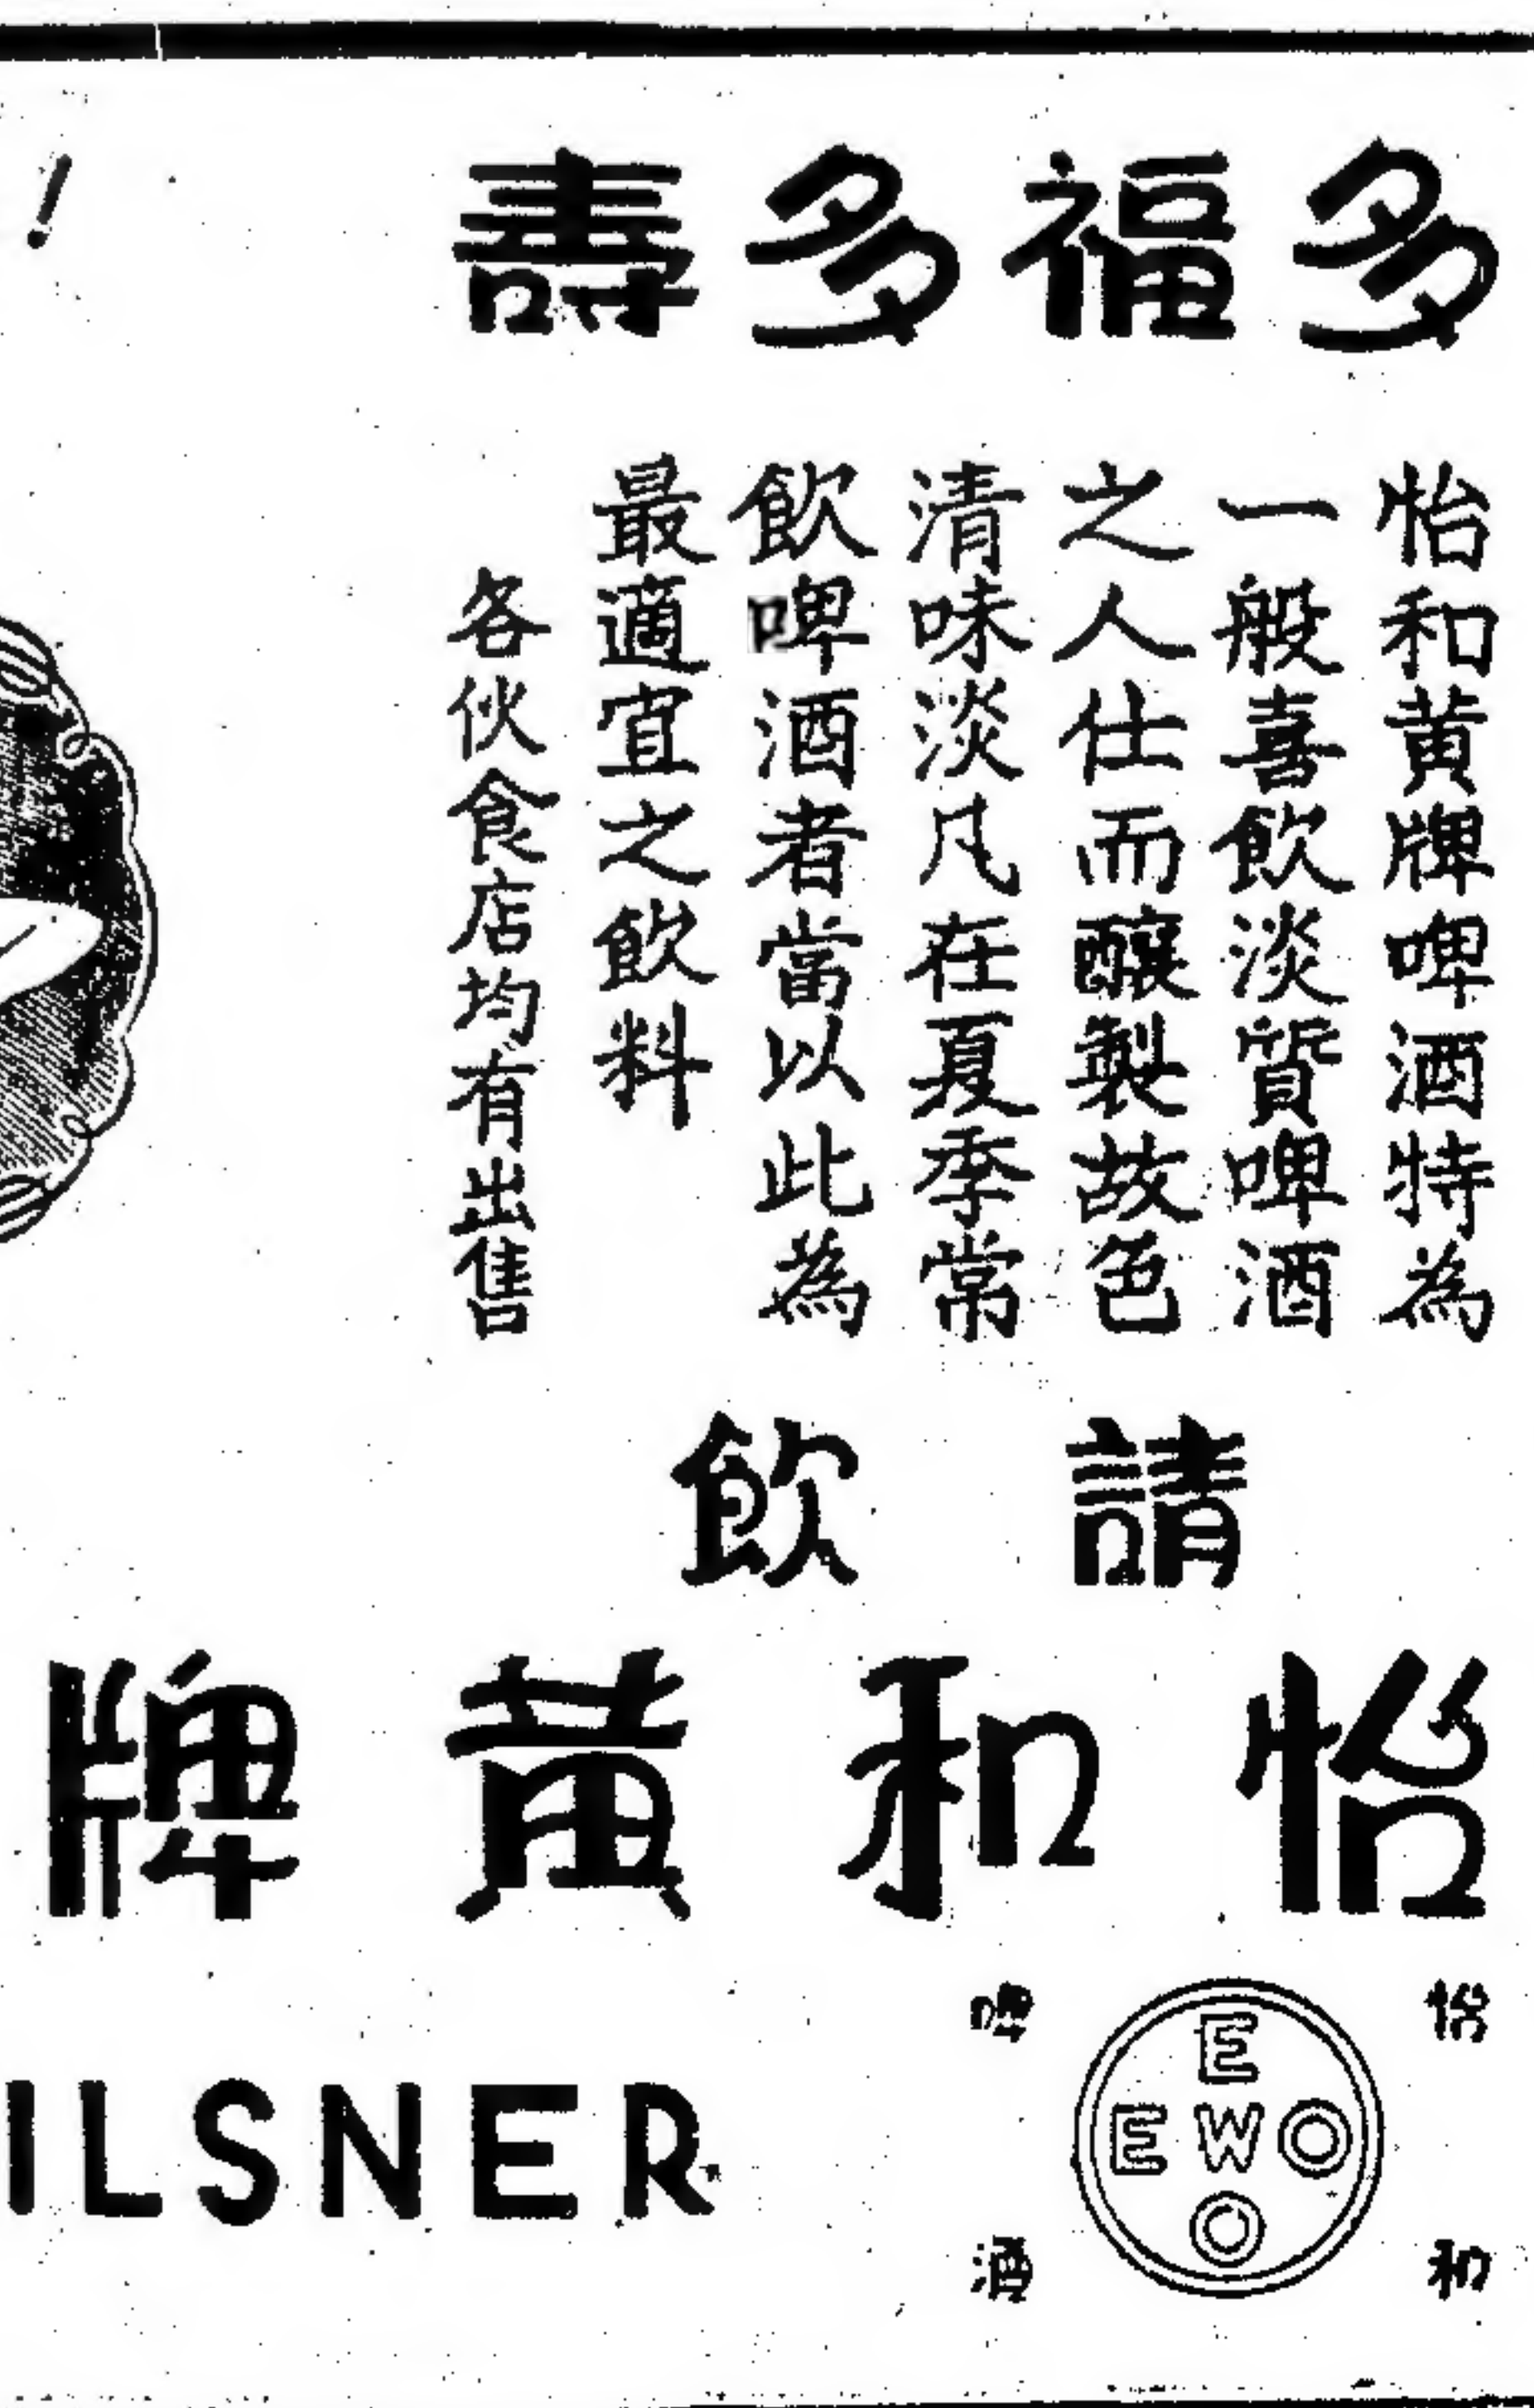 多福多壽
!
怡和黃牌啤酒特為
一般喜飲淡質啤酒
之人仕而釀製故色
清味淡凡在夏季常
飲啤酒者當以此為
最適宜之飲料
各伙食店均有出售
請飲
怡和黃牌
ILSNER
怡和
E
EWO
O
啤酒